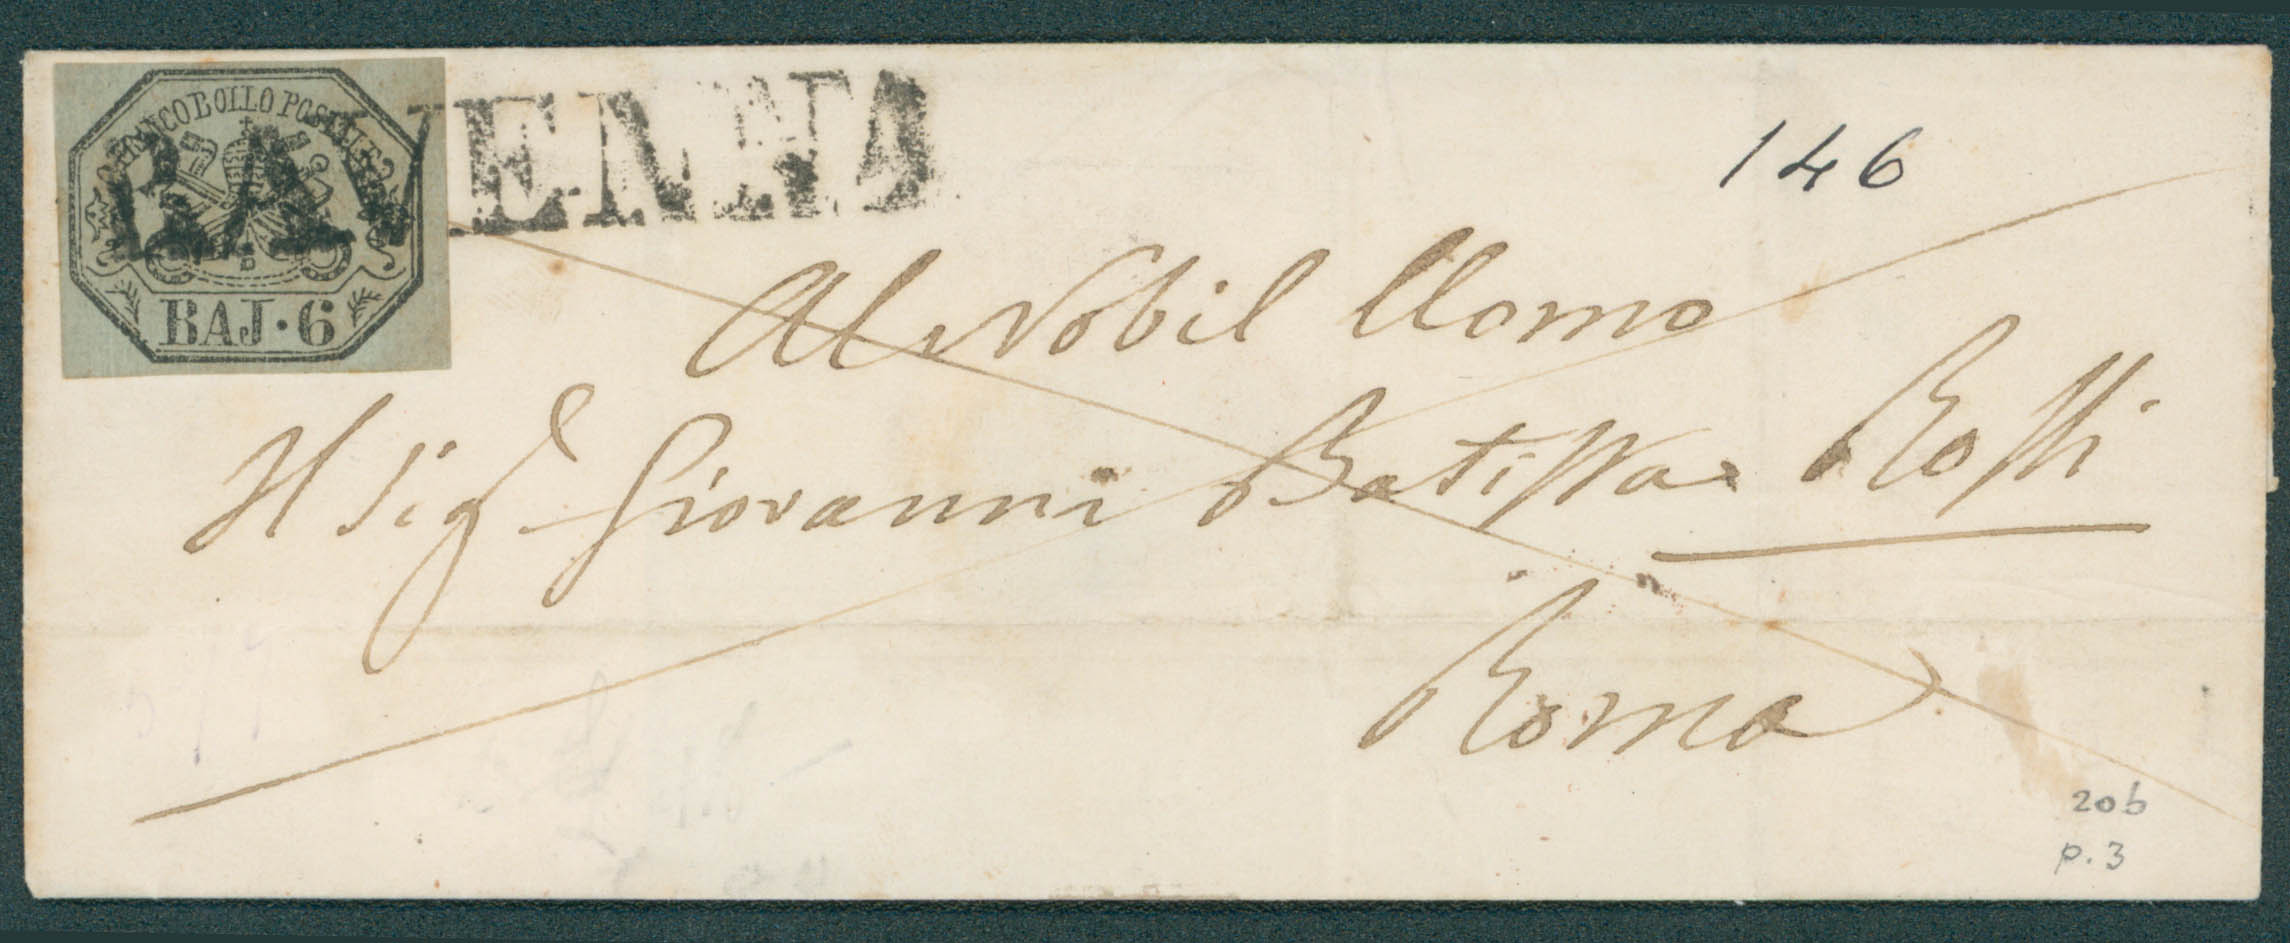 FRANCO BOLLO POSTALE
BAJ·6
RAVENNA
146
Al Nobil Uomo
Il Sig.r Giovanni Batissta Rossi
Roma
20b
p.3